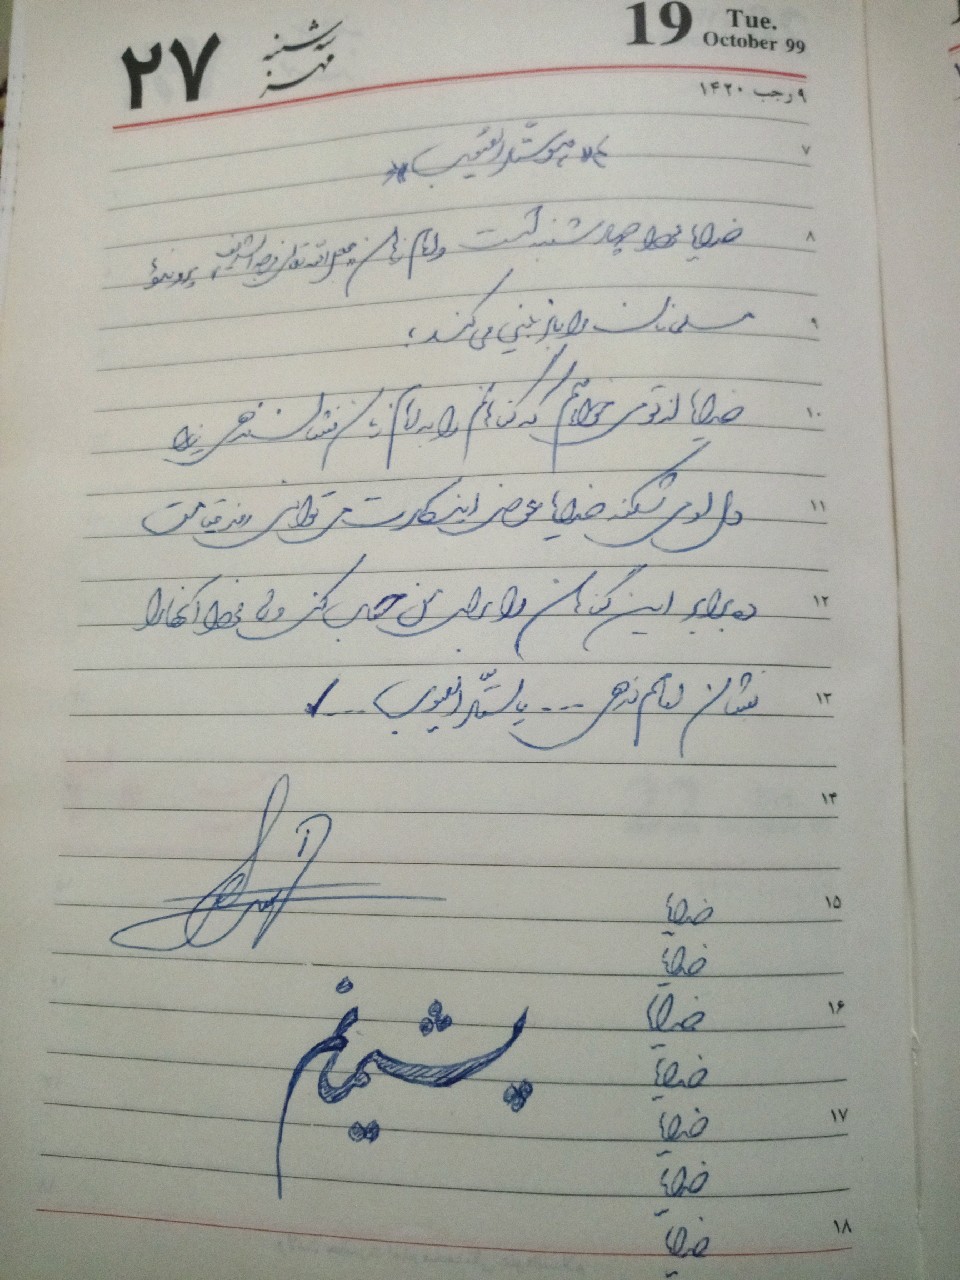 ۲۷ سه‌شنبه مهر 19 Tue. October 99
۹ رجب ۱۴۲۰
۷ «هو ستار العیوب»
۸ خدایا فردا چهارشنبه است و امام زمان عجل الله تعالی فرجه الشریف پرونده‌ها
۹ مسلمانان را بازبینی می‌کند؛
۱۰ خدایا از تو می‌خواهم که گناهانم را به امام زمان نشان ندهی زیرا
۱۱ دل او می‌شکند خدایا عوض اینکارت می‌توانی روز قیامت
۱۲ ده برابر این گناهان را برای من حساب کنی ولی فردا آنها را
۱۳ نشان امام ندهی ... یا ستار العیوب ...
۱۴
۱۵ خدایا
خدایا
۱۶ خدایا
خدایا
۱۷ خدایا
خدایا
۱۸ خدایا
پشیمانم